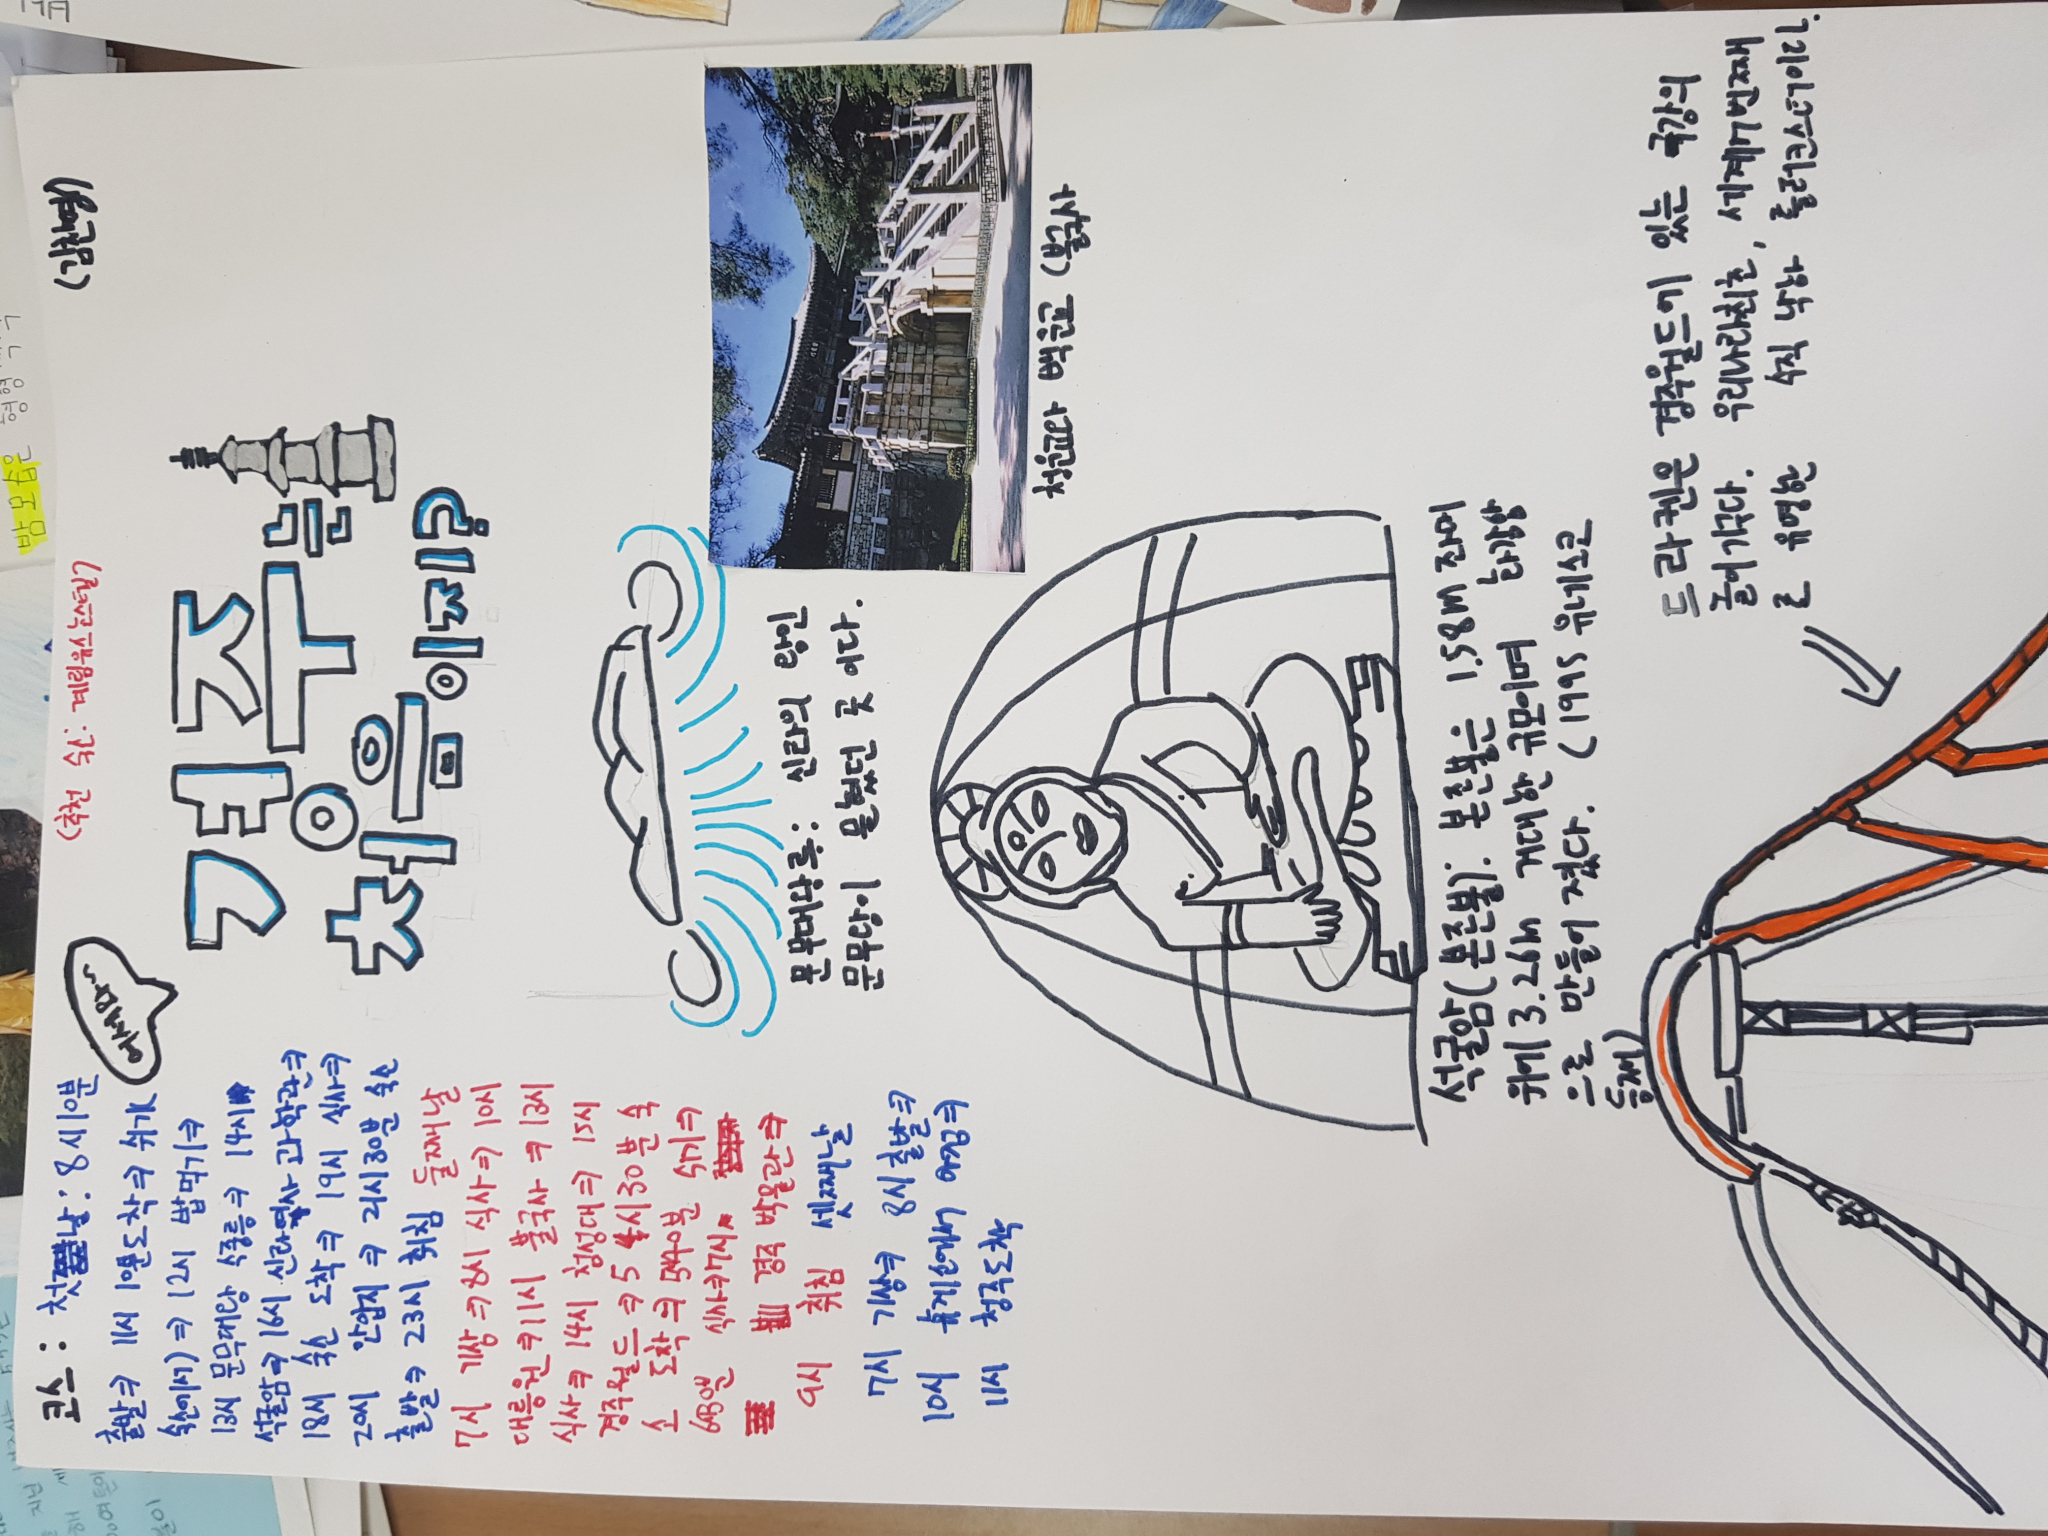 (김찬영)
(추천 숙소: 계림유스호스텔)
어서와~
경주는
처음이지?
코스: 첫째날: 8시10분
출발⇒ 11시 10분도착⇒ 쉬기
숙소에서)⇒ 12시 밥먹기⇒
13시 문무대왕 수중릉⇒ 14시
석굴암⇒16시 신라역사과학관⇒
18시 숙소 도착⇒ 19시 식사⇒
20시 안압지⇒ 21시30분 숙소
출발⇒ 23시 취침 둘째날
7시 기상⇒8시 식사⇒10시
대릉원⇒11시 불국사⇒13시
식사⇒14시 첨성대⇒ 15시
경주월드⇒5시30분 숙
소 도착⇒5시40분 쉬기⇒
식사⇒7시
경주 박물관⇒
9시 취침 셋째날
7시 기상⇒ 8시 출발⇒
10시 휴게소에서 아침⇒
11시 청주도착
문무대왕릉: 신라의 왕인
문무왕이 묻혔던 곳 이다.
청운교와 백운교 (불국사
석굴암(본존불): 본존불은 1.58m 좌대
위에 3.26m 거대한 규모이며 화강암
으로 만들어 졌다. (1995 유네스코
등재)
드라켄은 경주월드에 있는 극강의
놀이기구다. 우리나라최초, 세계7번째
로 유명한 수직 낙하 롤러코스터이다.
밤 모습은